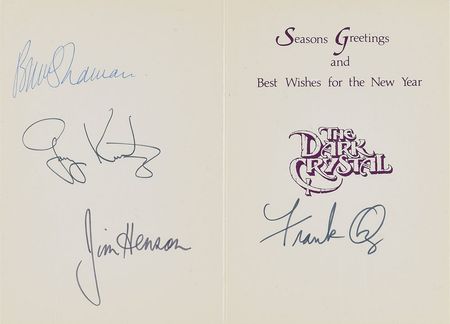 Bruce Sharman
Gary Kurtz
Jim Henson
Seasons Greetings
and
Best Wishes for the New Year
THE
DARK
CRYSTAL
Frank Oz